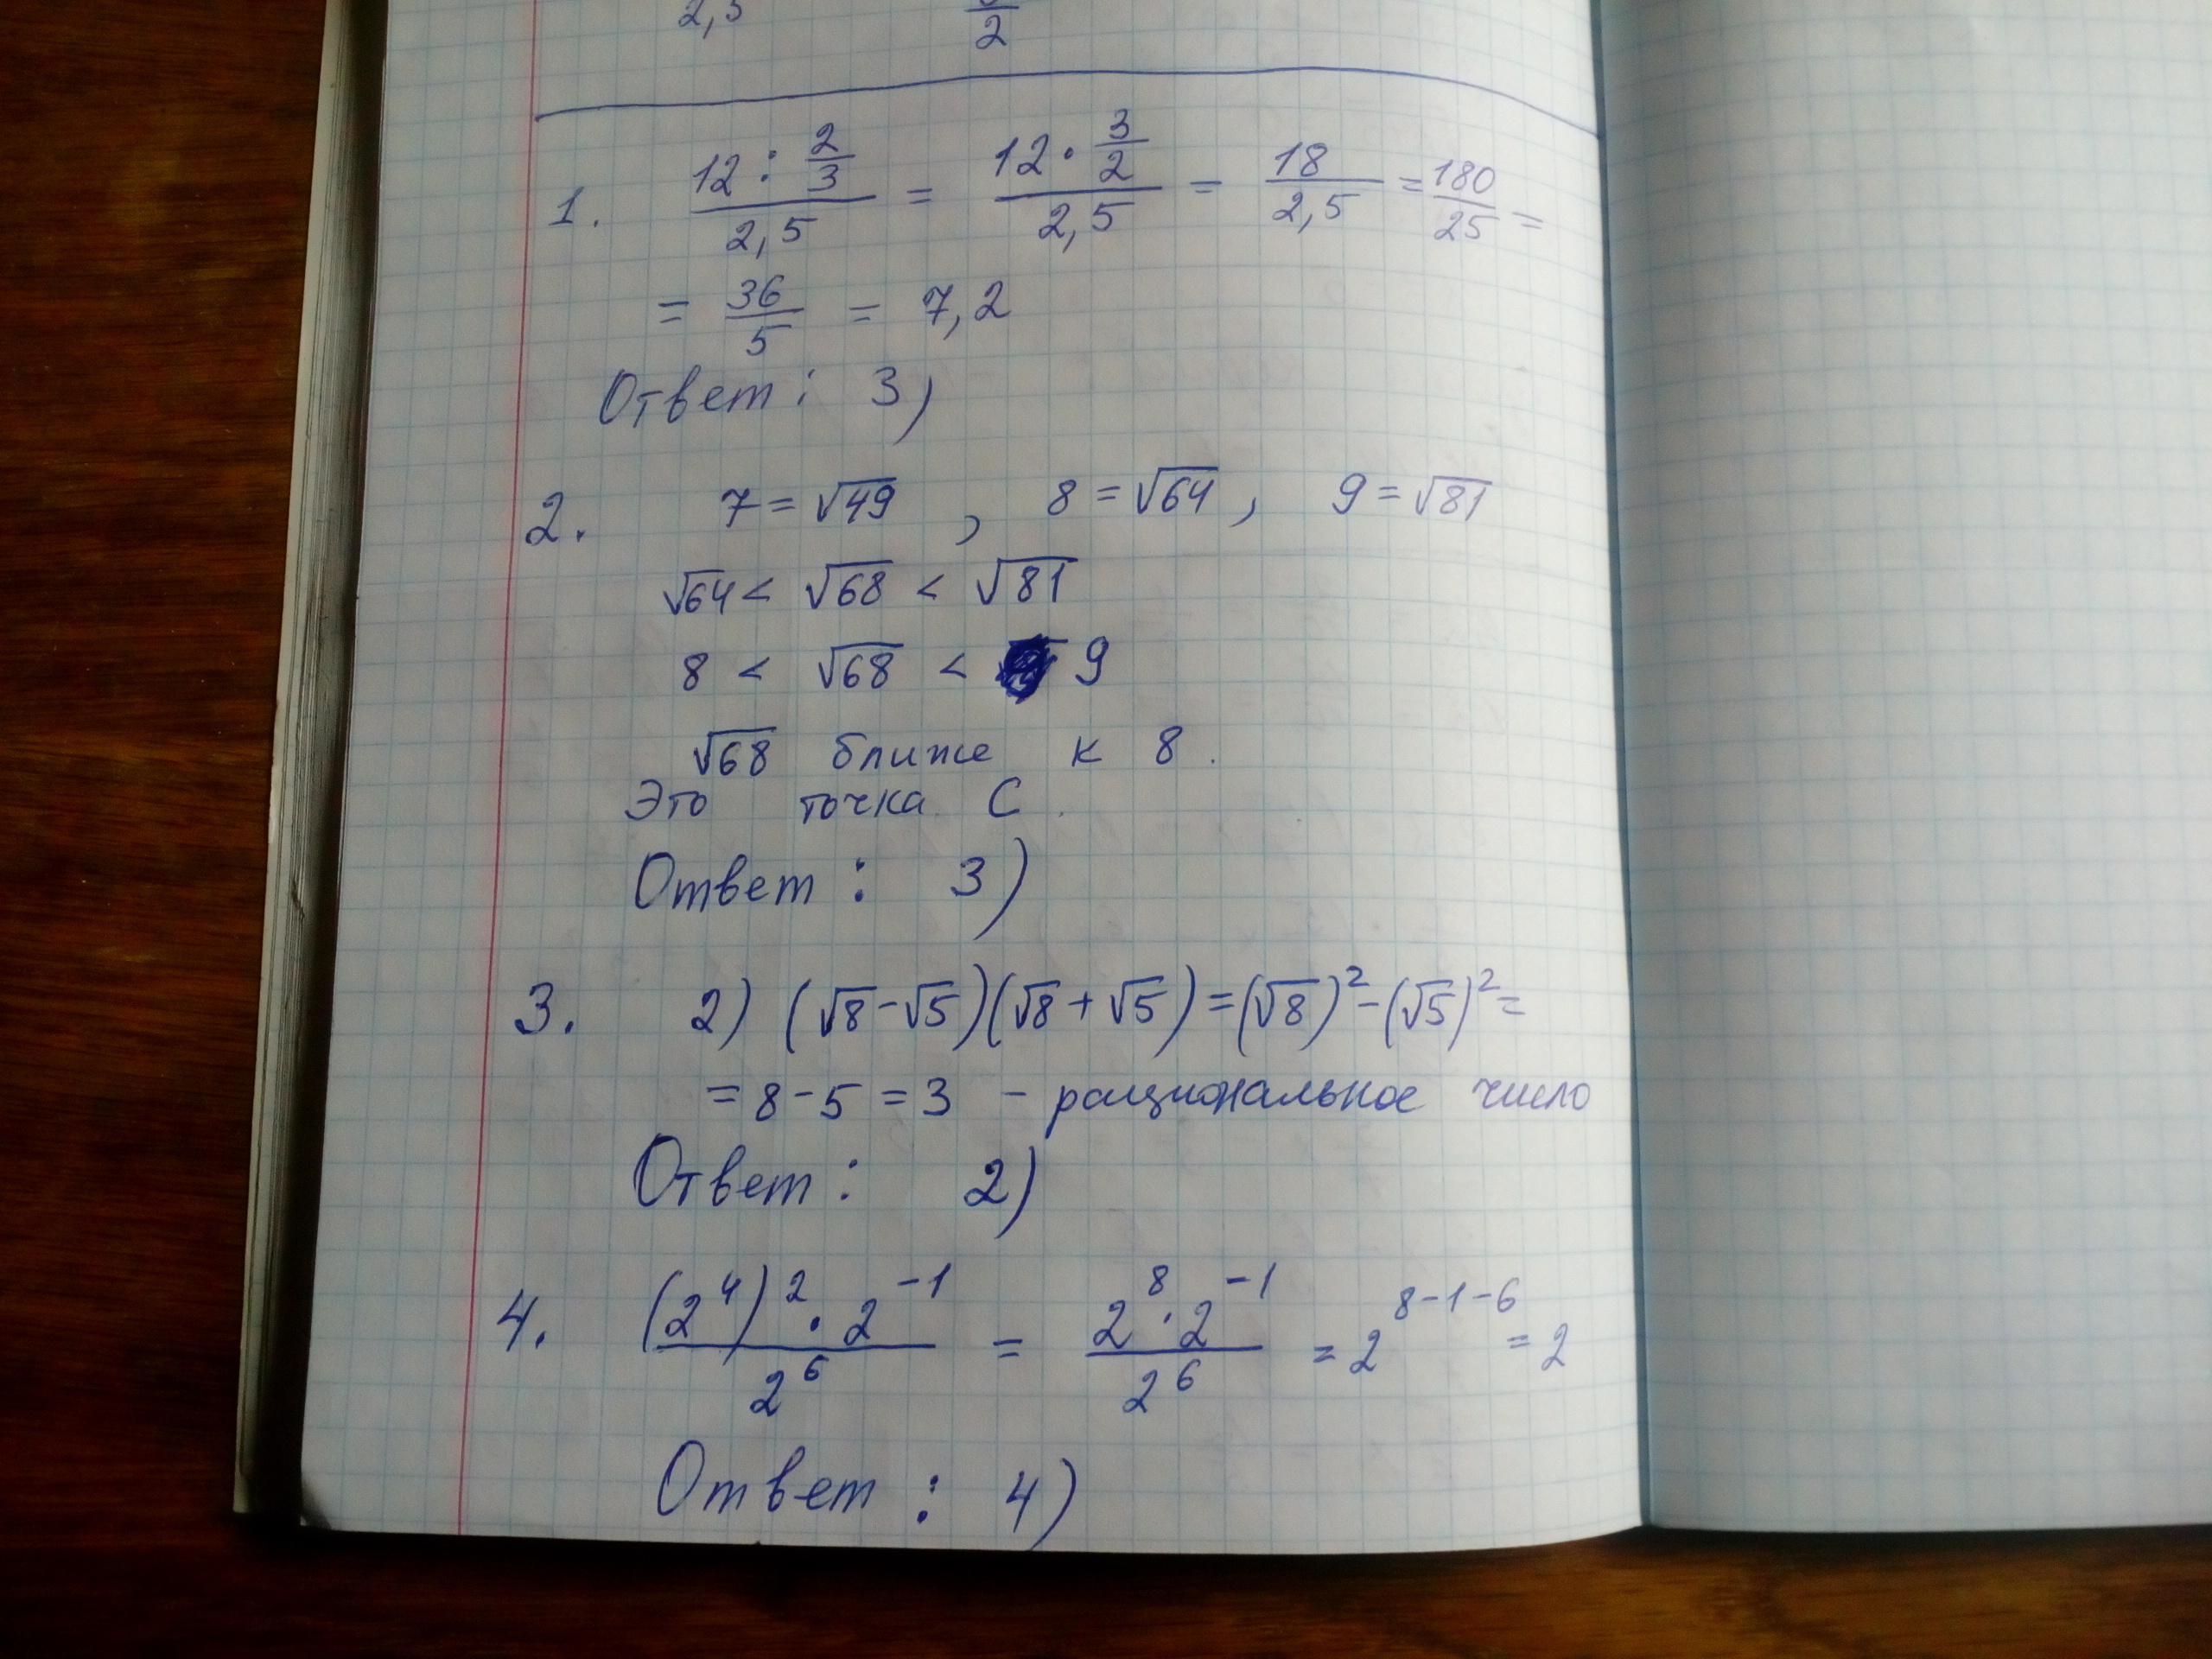 2,5 2
1. (12 : 2/3)/2,5 = (12 · 3/2)/2,5 = 18/2,5 = 180/25 =
= 36/5 = 7,2
Ответ : 3)
2. 7 = √49 , 8 = √64 , 9 = √81
√64 < √68 < √81
8 < √68 < 9
√68 ближе к 8 .
Это точка С .
Ответ : 3)
3. 2) (√8 - √5)(√8 + √5) = (√8)² - (√5)² =
= 8 - 5 = 3 - рациональное число
Ответ : 2)
4. ((2⁴)² · 2⁻¹)/2⁶ = (2⁸ · 2⁻¹)/2⁶ = 2⁸⁻¹⁻⁶ = 2
Ответ : 4)